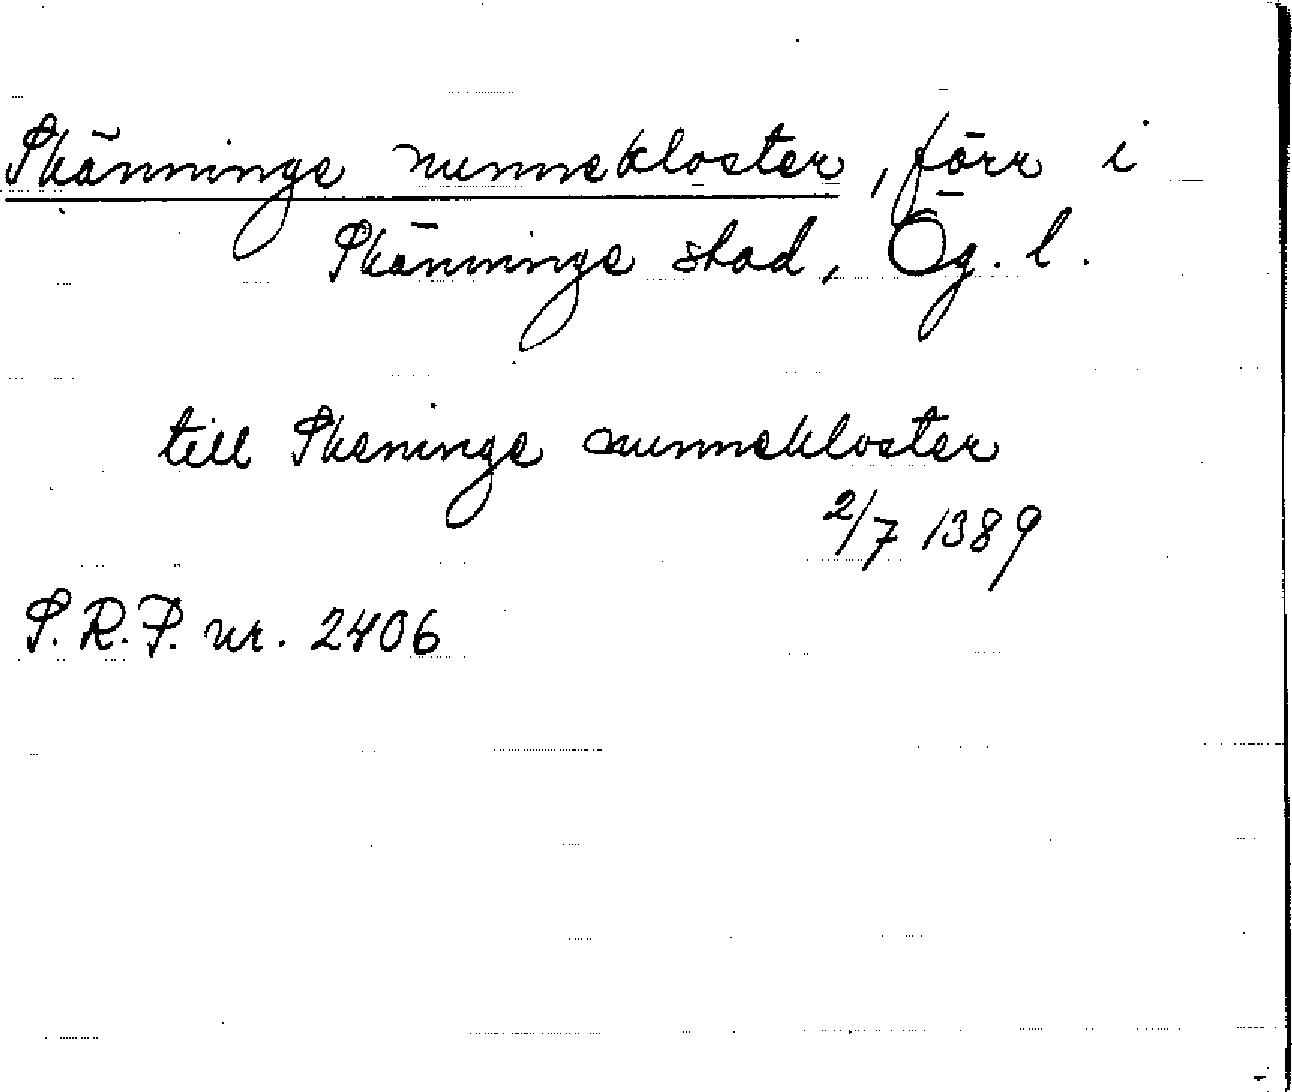 Skänninge nunnekloster, förr i
Skänninge stad, Ög. l.
till Skeninge nunnekloster
2/7 1389
S.R.P. nr. 2406